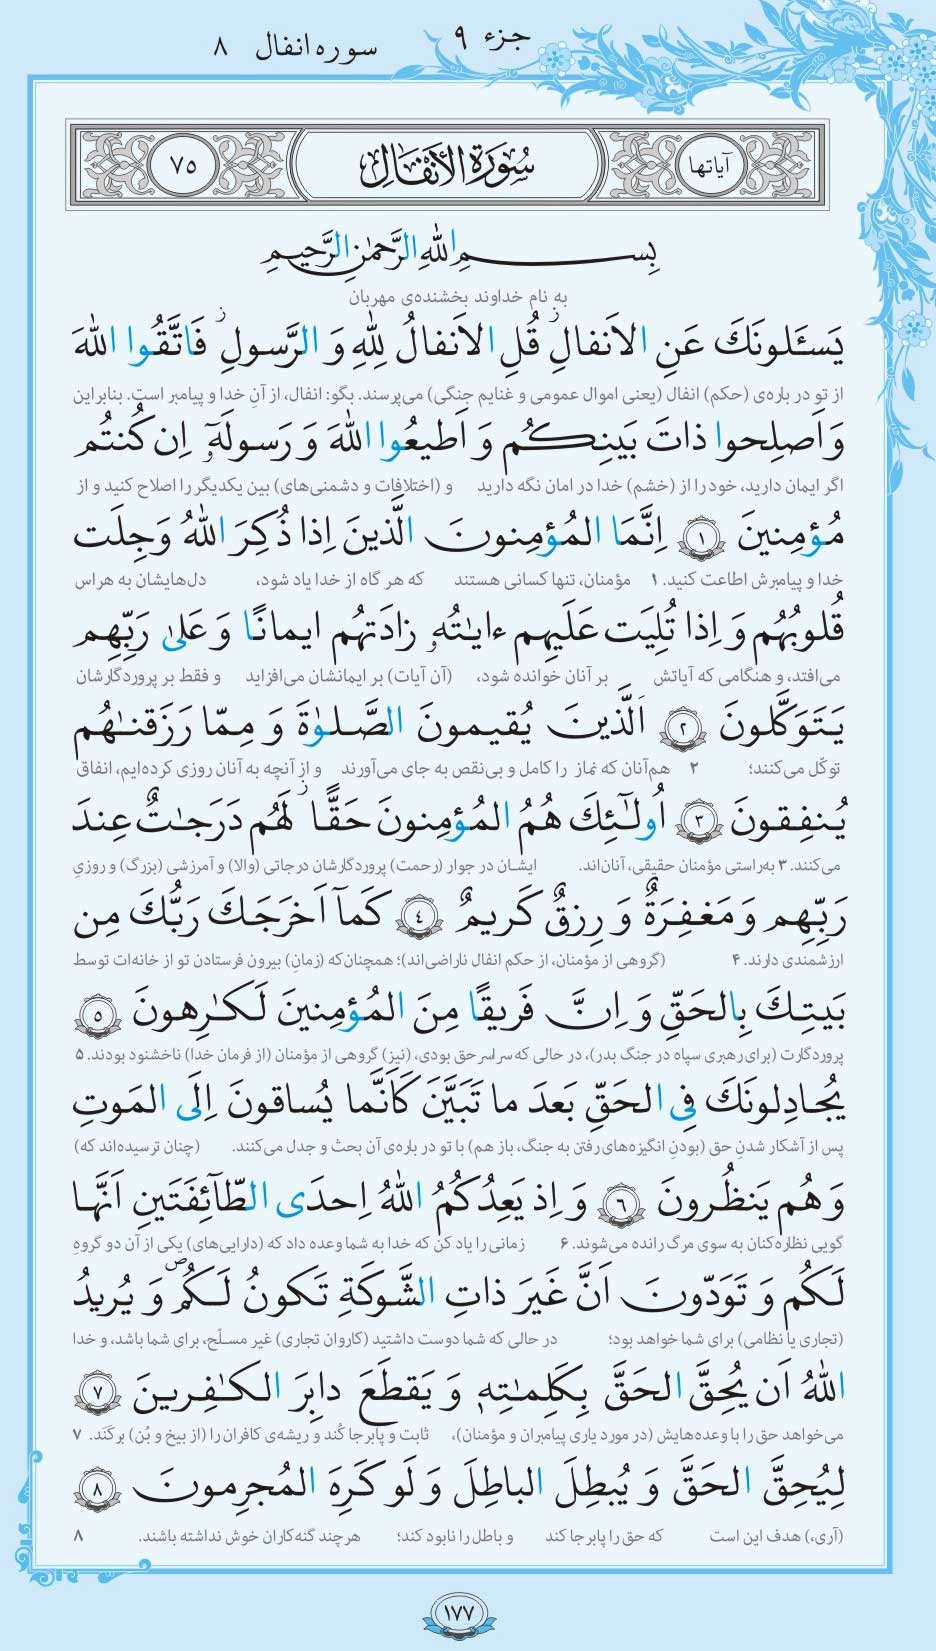 جزء ۹
سوره انفال ۸
آیاتها
سُورَةُ الأَنْفَالِ
۷۵
بِسمِ اللهِ الرَّحمٰنِ الرَّحيمِ
به نام خداوند بخشنده‌ی مهربان
يَسـَٔلونَكَ عَنِ الاَنفالِ ۖز قُلِ الاَنفالُ لِلّٰهِ وَ الرَّسولِ ۖز فَاتَّقُوا اللهَ
از تو در باره‌ی (حکم) انفال (یعنی اموال عمومی و غنایم جنگی) می‌پرسند. بگو: انفال، از آنِ خدا و پیامبر است. بنابراین
وَ اَصلِحوا ذاتَ بَينِكُم وَ اَطيعُوا اللهَ وَ رَسولَهٗٓ اِن كُنتُم
اگر ایمان دارید، خود را از (خشم) خدا در امان نگه دارید و (اختلافات و دشمنی‌های) بین یکدیگر را اصلاح کنید و از
مُؤمِنينَ ۱ اِنَّمَا المُؤمِنونَ الَّذينَ اِذا ذُكِرَ اللهُ وَجِلَت
خدا و پیامبرش اطاعت کنید. ۱ مؤمنان، تنها کسانی هستند که هر گاه از خدا یاد شود، دل‌هایشان به هراس
قُلوبُهُم وَ اِذا تُلِيَت عَلَيهِم ءايٰتُهٗ زادَتهُم ايمانًا وَ عَلىٰ رَبِّهِم
می‌افتد، و هنگامی که آیاتش بر آنان خوانده شود، (آن آیات) بر ایمانشان می‌افزاید و فقط بر پروردگارشان
يَتَوَكَّلونَ ۲ اَلَّذينَ يُقيمونَ الصَّلوٰةَ وَ مِمّا رَزَقنٰهُم
توکّل می‌کنند؛ ۲ هم‌آنان که نماز را کامل و بی‌نقص به جای می‌آورند و از آنچه به آنان روزی کرده‌ایم، انفاق
يُنفِقونَ ۳ اُولٰٓئِكَ هُمُ المُؤمِنونَ حَقًّا ۚز لَهُم دَرَجٰتٌ عِندَ
می‌کنند. ۳ به‌راستی مؤمنان حقیقی، آنان‌اند. ایشان در جوار (رحمت) پروردگارشان درجاتی (والا) و آمرزشی (بزرگ) و روزیِ
رَبِّهِم وَ مَغفِرَةٌ وَ رِزقٌ كَريمٌ ٤ كَمآ اَخرَجَكَ رَبُّكَ مِن
ارزشمندی دارند. ۴ (گروهی از مؤمنان، از حکم انفال ناراضی‌اند)؛ همچنان‌که (زمانِ) بیرون فرستادن تو از خانه‌ات توسط
بَيتِكَ بِالحَقِّ وَ اِنَّ فَريقًا مِنَ المُؤمِنينَ لَكٰرِهونَ ۵
پروردگارت (برای رهبری سپاه در جنگ بدر)، در حالی که سراسر حق بودی، (نیز) گروهی از مؤمنان (از فرمان خدا) ناخشنود بودند. ۵
يُجادِلونَكَ فِي الحَقِّ بَعدَ ما تَبَيَّنَ كَاَنَّما يُساقونَ اِلَى المَوتِ
پس از آشکار شدنِ حق (بودنِ انگیزه‌های رفتن به جنگ، باز هم) با تو در باره‌ی آن بحث و جدل می‌کنند. (چنان ترسیده‌اند که)
وَ هُم يَنظُرونَ ٦ وَ اِذ يَعِدُكُمُ اللهُ اِحدَى الطّآئِفَتَينِ اَنَّها
گویی نظاره‌کنان به سوی مرگ رانده می‌شوند. ۶ زمانی را یاد کن که خدا به شما وعده داد که (دارایی‌های) یکی از آن دو گروه
لَكُم وَ تَوَدّونَ اَنَّ غَيرَ ذاتِ الشَّوكَةِ تَكونُ لَكُم ص وَ يُريدُ
(تجاری یا نظامی) برای شما خواهد بود؛ در حالی که شما دوست داشتید (کاروان تجاری) غیر مسلّح، برای شما باشد، و خدا
اللهُ اَن يُحِقَّ الحَقَّ بِكَلِمٰتِهٖ وَ يَقطَعَ دابِرَ الكٰفِرينَ ۷
می‌خواهد حق را با وعده‌هایش (در مورد یاری پیامبران و مؤمنان)، ثابت و پابرجا کُند و ریشه‌ی کافران را (از بیخ و بُن) برکَنَد. ۷
لِيُحِقَّ الحَقَّ وَ يُبطِلَ الباطِلَ وَ لَو كَرِهَ المُجرِمونَ ۸
(آری،) هدف این است که حق را پابرجا کند و باطل را نابود کند؛ هرچند گنه‌کاران خوش نداشته باشند. ۸
۱۷۷